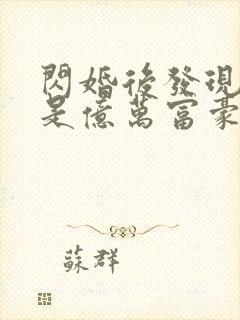 閃婚後發現
是億萬富豪
蘇群